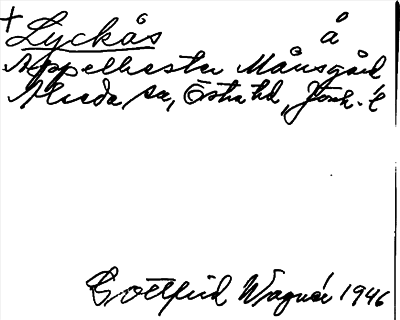 + Lyckås å
Äppelhester Månsgård
Almeda sn, Östra hd, Jönk. l
Gottfrid Wagnér 1946